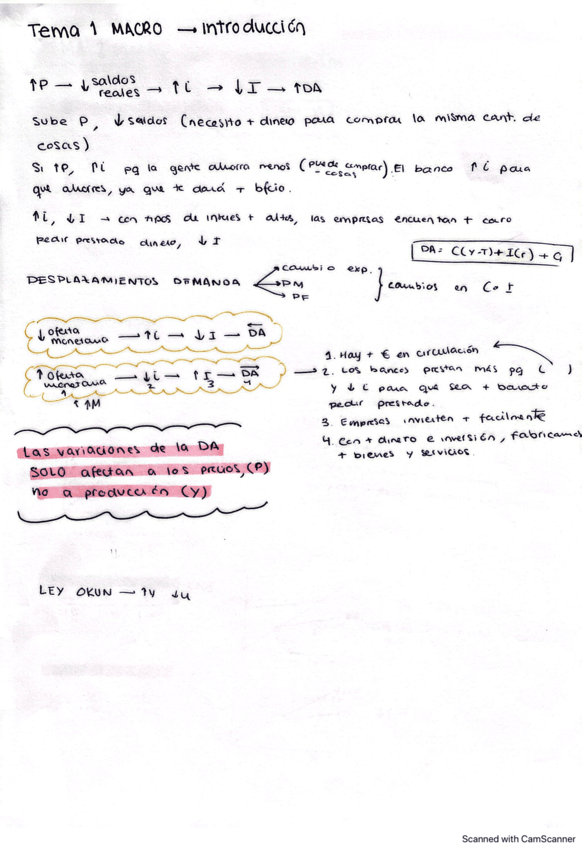 Tema 1 MACRO → introducción
↑P → ↓ saldos reales → ↑i → ↓I → ↑DA
Sube P, ↓ saldos (necesito + dinero para comprar la misma cant. de
cosas)
Si ↑P, ↑i pq la gente ahorra menos (puede comprar - cosas). El banco ↑i para
que ahorres, ya que te dará + bfcio.
↑i, ↓I → con tipos de interes + altos, las empresas encuentran + caro
pedir prestado dinero, ↓I
DA = C(Y-T) + I(r) + G
DESPLAZAMIENTOS DEMANDA
cambio exp.
PM
PF
cambios en C o I
↓ oferta monetaria → ↑i → ↓I → DA
↑ oferta monetaria → ↓i → ↑I → DA
1 2 3 4
↑M
1. Hay + € en circulación
2. Los bancos prestan más pq ( )
y ↓i para que sea + barato
pedir prestado.
3. Empresas invierten + facilmente
4. Con + dinero e inversión, fabricamos
+ bienes y servicios.
Las variaciones de la DA
SOLO afectan a los precios, (P)
no a producción (Y)
LEY OKUN → ↑Y ↓u
Scanned with CamScanner